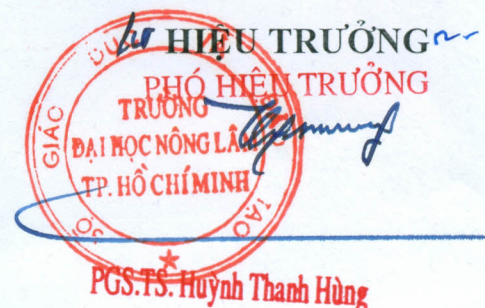 HIỆU TRƯỞNG
PHÓ HIỆU TRƯỞNG
TRƯỜNG
ĐẠI HỌC NÔNG LÂM
TP. HỒ CHÍ MINH
GIÁO DỤC
TẠO
PGS.TS. Huỳnh Thanh Hùng